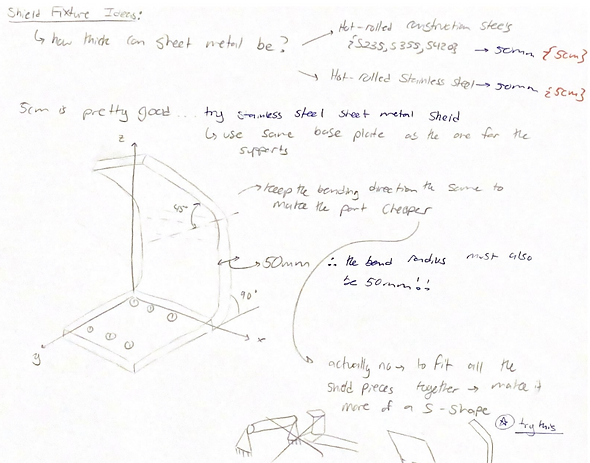 Shield Fixture Ideas:
↳ how thick can sheet metal be?
Hot-rolled construction steels
{S235, S355, S420} → 50mm {5cm}
Hot-Rolled Stainless Steel → 50mm {5cm}
5cm is pretty good... try stainless steel sheet metal Shield
↳ use same base plate as the one for the
supports
z
→ keep the bending direction the same to
make the part cheaper
45°
50mm ∴ the bend radius must also
be 50mm!!
90°
x
y
actually no → to fit all the
shield pieces together → make it
more of a S-shape
try this